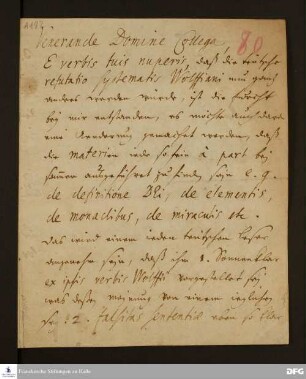 Venerande Domine Collega,
80
E verbis tuis nuperis, daß die teutsche
refutatio systematis Wolffiani nun ganz
anders werden würde, ist die Furcht
bei mir entstanden, es möchte auch darin
eine Änderung gemacht werden, daß
die materien nicht so fein à part bei
sammen ausgeführet zu finden seyn e. g.
de definitione DEi, de elementis,
de monadibus, de miraculis etc.
das wird einem jeden teutschen Leser
angenehm seyn, daß ihm 1.
ex ipsis verbis Wolffii vorgestellet sey,
was dessen meinung von einem jeglichen
sey 2. falsitas sententiae so klar
Franckesche Stiftungen zu Halle
DFG